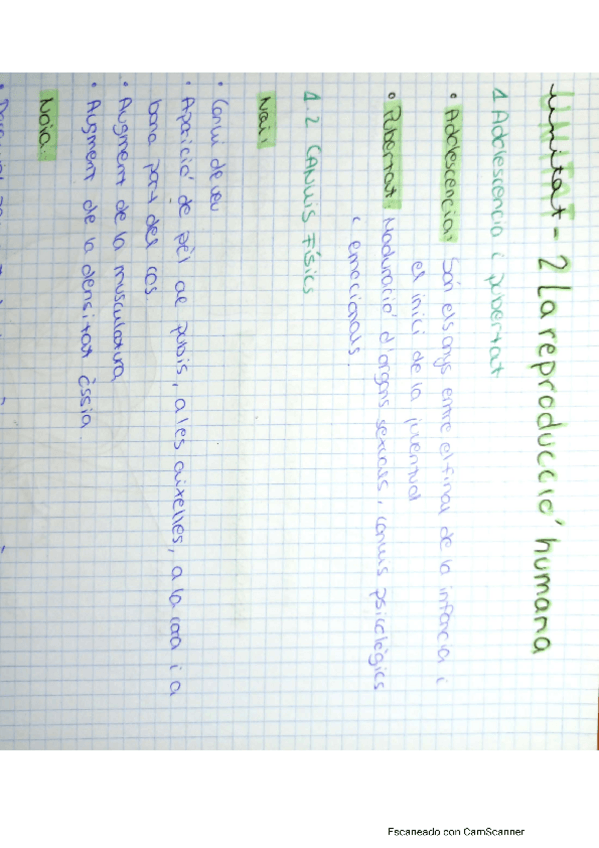 unitat - 2 La reproducció humana
1 Adolescencia i pubertat
• Adolescencia: Són els anys entre el final de la infància i
el inici de la juventud
• Pubertat: Maduració d'organs sexuals, canvis psicològics
i emocionals.
1.2 CANVIS FÍSICS
Noi:
• Canvi de veu
• Aparició de pèl al pubis, a les aixelles, a la cara i a
bona part del cos.
• Augment de la musculatura
• Augment de la densitat òssia.
Noia:
Escaneado con CamScanner